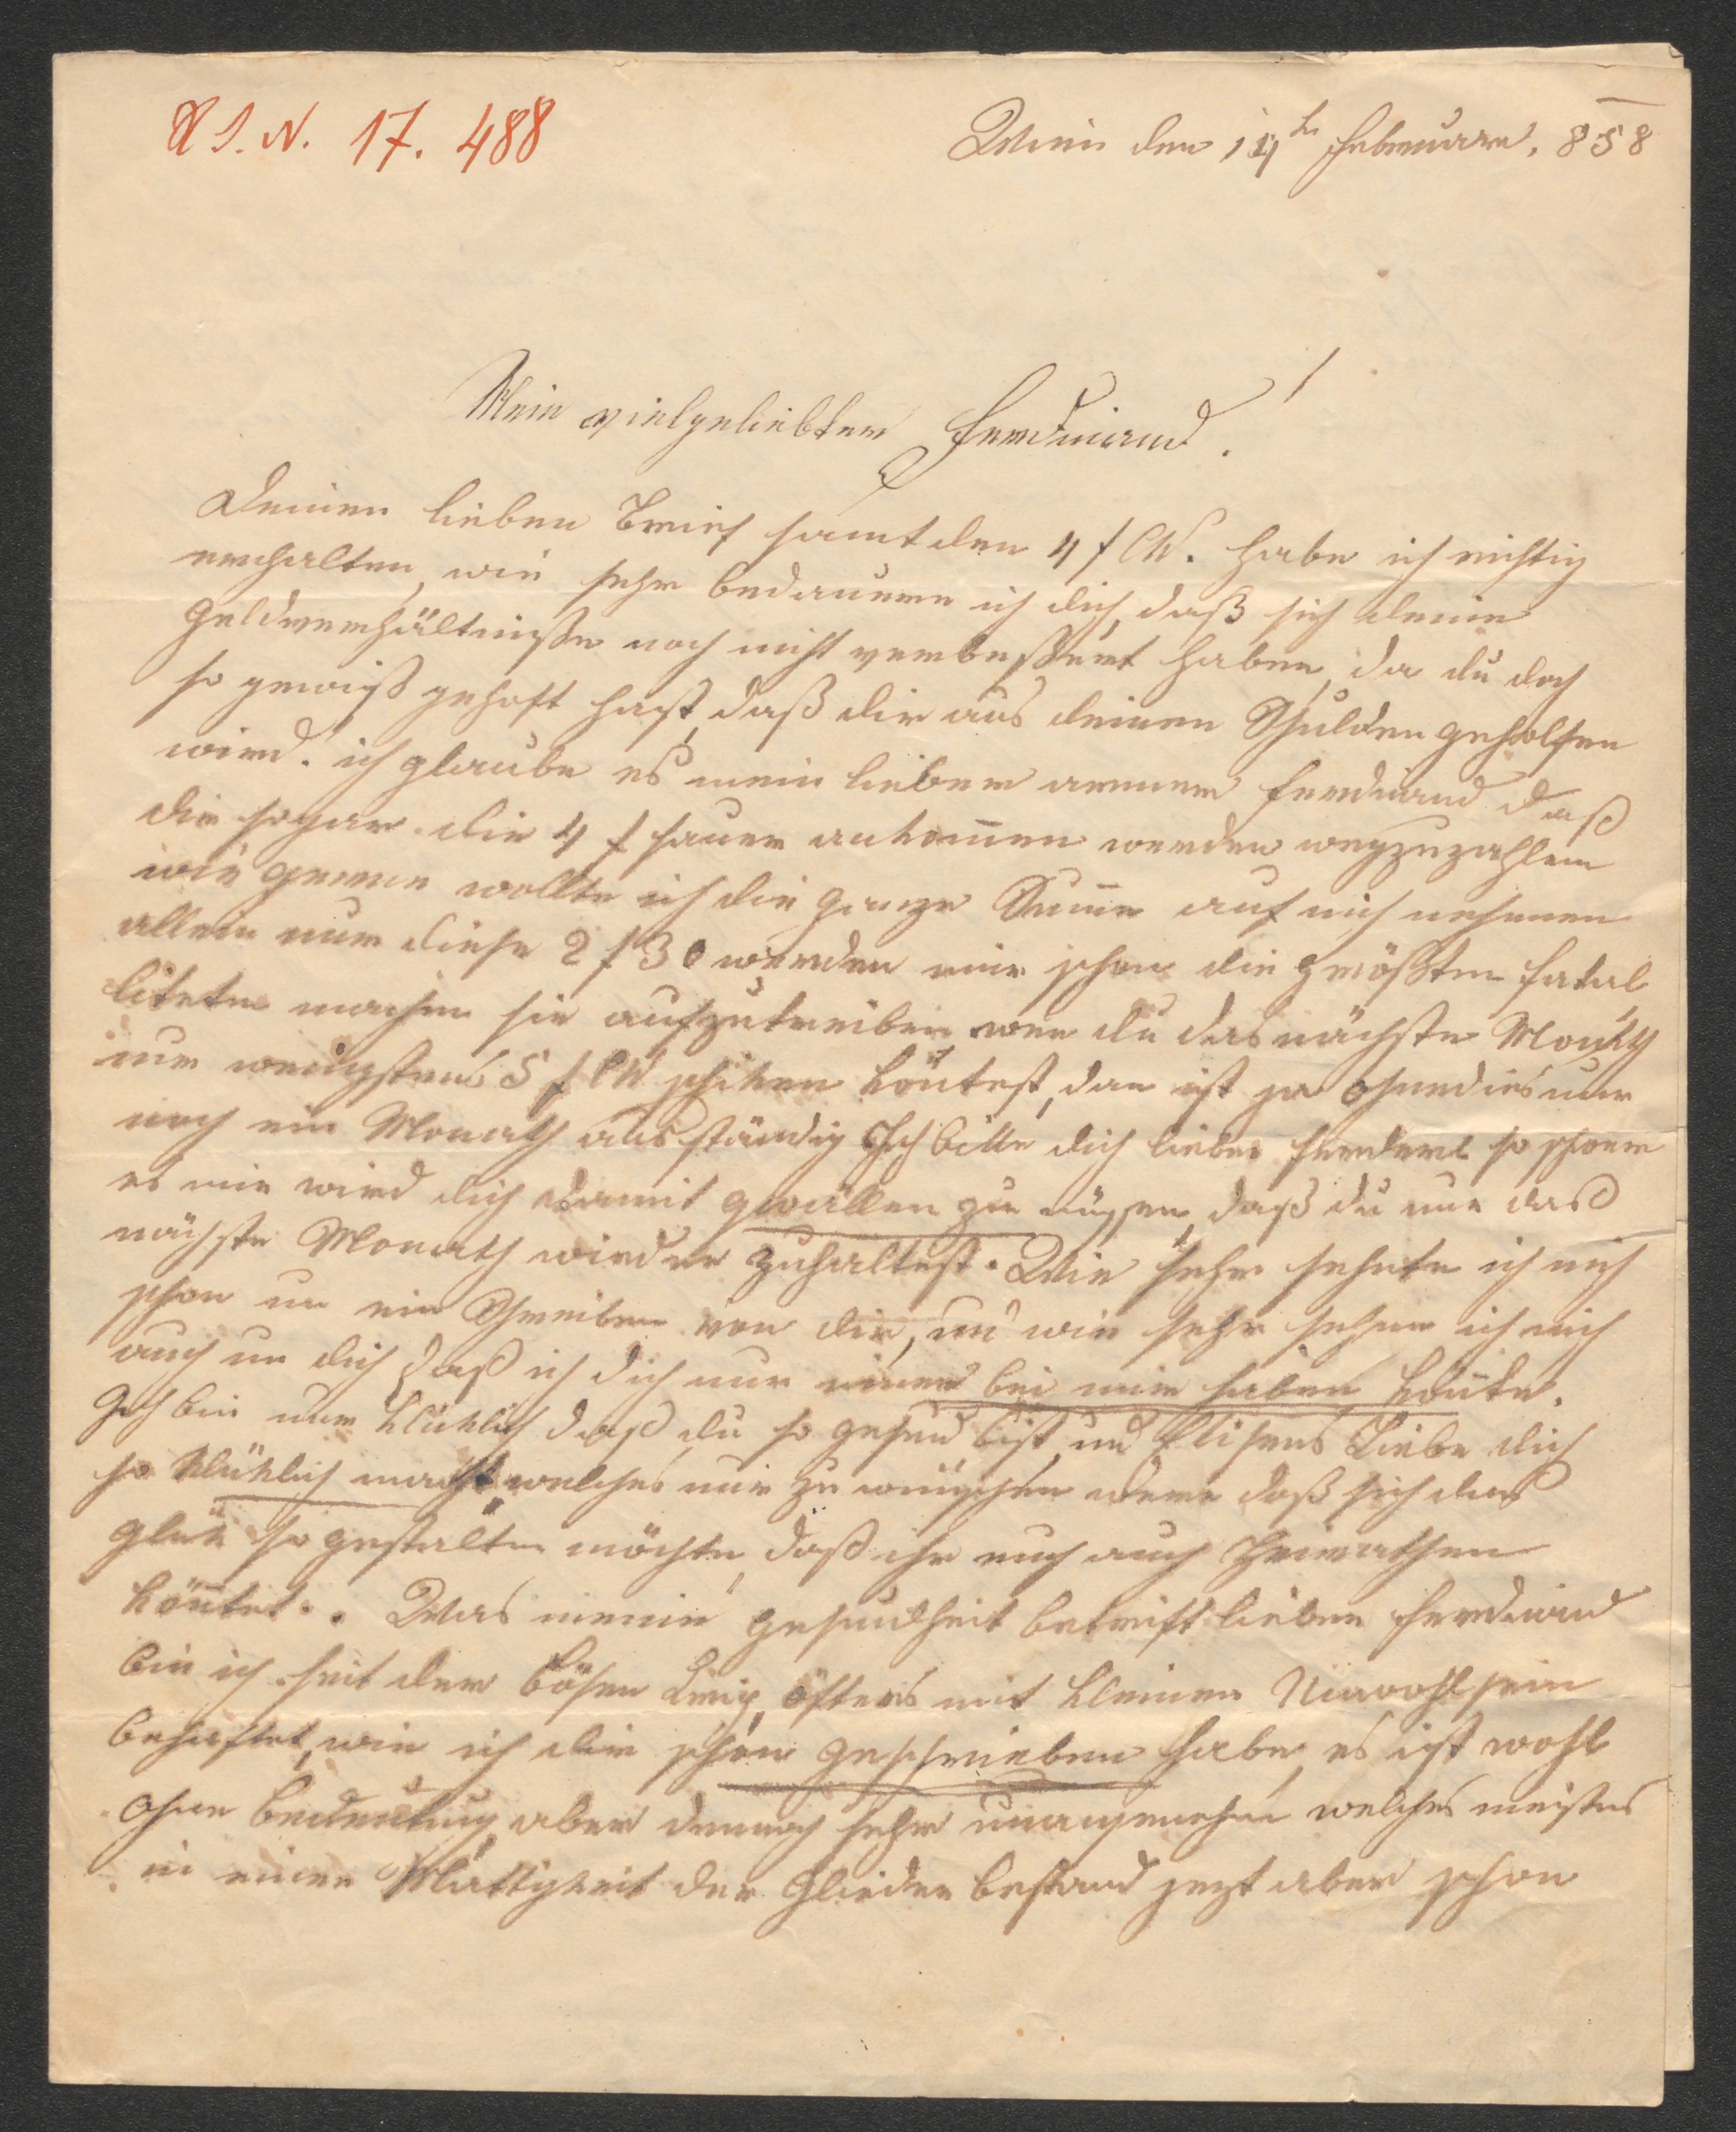 I. N. 17. 488
Wien den 14t Februar. 858
Mein vielgeliebter Ferdinand!
Deinen lieben Brief samt den 4 f CM. habe ich richtig
erhalten, wie sehr bedauere ich dich, daß sich deine
Geldverhältniße noch nicht verbeßert haben, da du doch
so gewiß gehoft hast, daß dir aus deinen Schulden geholfen
wird. ich glaube es mein lieber armer Ferdinand daß
dir sogar die 4 f sauer ankom̄en werden wegzuzahlen
wie gerne wollte ich die ganze Sum̄e auf mich nehmen
allein nur diese 2 f 30 werden mir schon die größten Fatal
liteten machen sie aufzutreiben, wen du das nächste Month
nur wenigstens 5 f CM schiken köntest, dan ist ja ohnedies nur
noch ein Monath ausständig Ich bitte dich lieber Ferderl so schwer
es mir wird dich damit quällen zu müssen, daß du nur das
nächste Monath wieder zuhaltest. Wie sehr sehnte ich mich
schon um ein Schreiben von dir, und wie sehr sehne ich mich
auch um dich daß ich dich nur einmal bei mir haben kön̄te.
Ich bin nur klüklich daß du so gesund bist, und Elisens Liebe dich
so klüklich macht, welches nur zu wünschen were daß sich das
Glük so gestalten möchte, daß ihr euch auch Heirathen
kön̄tet. Was meine Gesundheit betrift lieber Ferdinand
bin ich seit der bösen Krip, öfters mit kleinen Unwohlsein
behaftet, wie ich dir schon geschrieben habe, es ist wohl
ohne Bedeutung, aber dennoch sehr unangenehm welches meistens
in einer Mattigkeit der Glieder bestand jezt aber schon